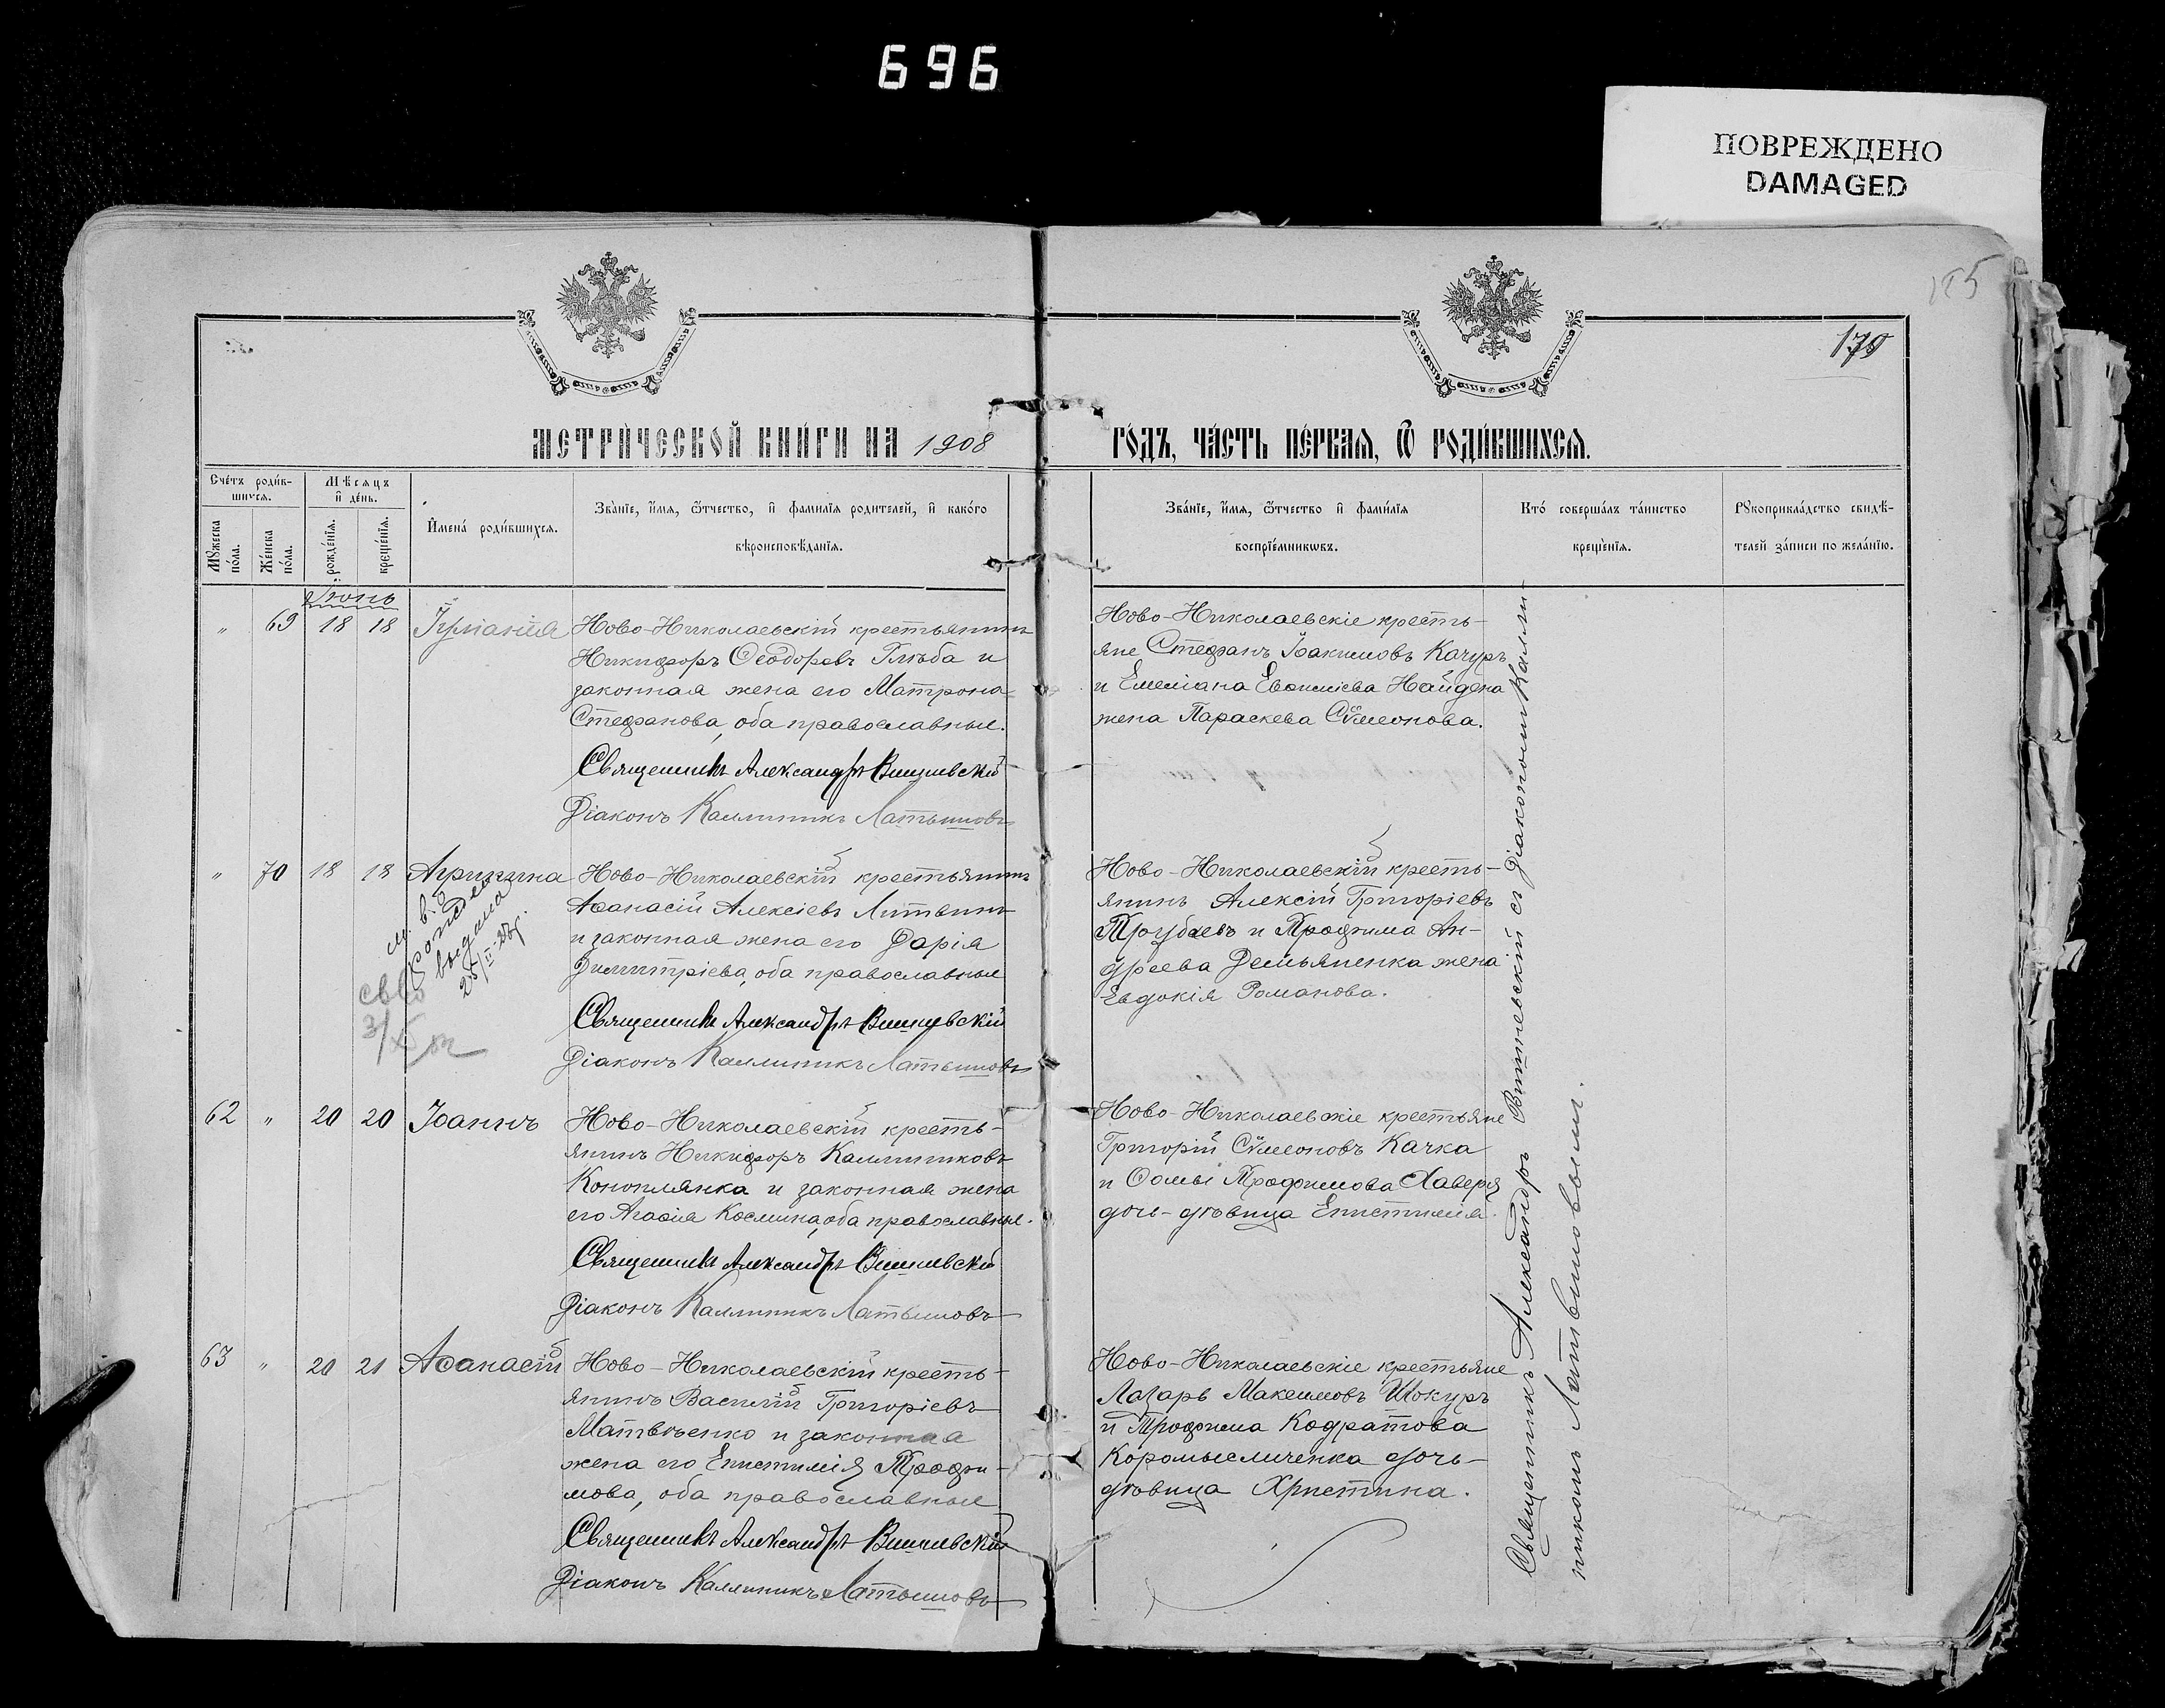 696
ПОВРЕЖДЕНО
DAMAGED
179
МЕТРИ́ЧЕСКОЙ КНИ́ГИ НА 1908
ГО́ДЪ, ЧА́СТЬ ПЕ́РВАѦ, Ѿ РОДИ́ВШИХСѦ.
Сче́тъ роди́в-
шихсѧ.
Мѣ́сѧцъ
и҆ де́нь.
Мꙋ́жеска
по́ла.
Же́нска
по́ла.
рожде́нїѧ.
креще́нїѧ.
И҆мена̀ роди́вшихсѧ.
Зва́нїе, и҆́мѧ, ѻ҆́тчество, и҆ фами́лїѧ роди́телей, и҆ како́го
вѣроисповѣ́данїѧ.
Зва́нїе, и҆́мѧ, ѻ҆́тчество и҆ фами́лїѧ
воспрїе́мникѡвъ.
Кто̀ соверша́лъ та́инство
креще́нїѧ.
Рꙋкоприкла́дство свидѣ́-
телей за́писи по жела́нїю.
Іюнь
" 69 18 18 Іуліанія Ново-Николаевскій крестьянинъ
Никифоръ Ѳеодоровъ Глѣба и
законная жена его Матрона
Стефанова, оба православные.
Священникъ Александръ Вишневскій
Діаконъ Каллиникъ Латвиновъ
Ново-Николаевскіе кресть-
яне Стефанъ Іоакимовъ Качуръ
и Емеліана Евѳиміева Найдена
жена Параскева Сѵмеонова.
" 70 18 18 Агрипина Ново-Николаевскій крестьянинъ
Аѳанасій Алексіевъ Литвинъ
и законная жена его Дарія
Димитріева, оба православные
Священникъ Александръ Вишневскій
Діаконъ Каллиникъ Латвиновъ
выдана
Ново-Николаевскій кресть-
янинъ Алексій Григоріевъ
Трубаевъ и Трофима Ан-
дреева Демьяненка жена
Евдокія Романова.
62 " 20 20 Іоаннъ Ново-Николаевскій кресть-
янинъ Никифоръ Каллиниковъ
Коноплянка и законная жена
его Агаѳія Космина, оба православные.
Священникъ Александръ Вишневскій
Діаконъ Каллиникъ Латвиновъ
Ново-Николаевскіе крестьяне
Григорій Сѵмеоновъ Качка
и Ѳомы Трофимова Хаверя
дочь-дѣвица Епистимія.
63 " 20 21 Аѳанасій Ново-Николаевскій кресть-
янинъ Василій Григоріевъ
Матвѣенко и законная
жена его Епистимія Трофи-
мова, оба православные
Священникъ Александръ Вишневскій
Діаконъ Каллиникъ Латвиновъ
Ново-Николаевскіе крестьяне
Лазарь Максимовъ Шокуръ
и Трофима Кодратова
Коромысличенка дочь-
дѣвица Христина.
Священникъ Александръ Вишневскій съ діакономъ Калли-
никомъ Латвиновымъ.